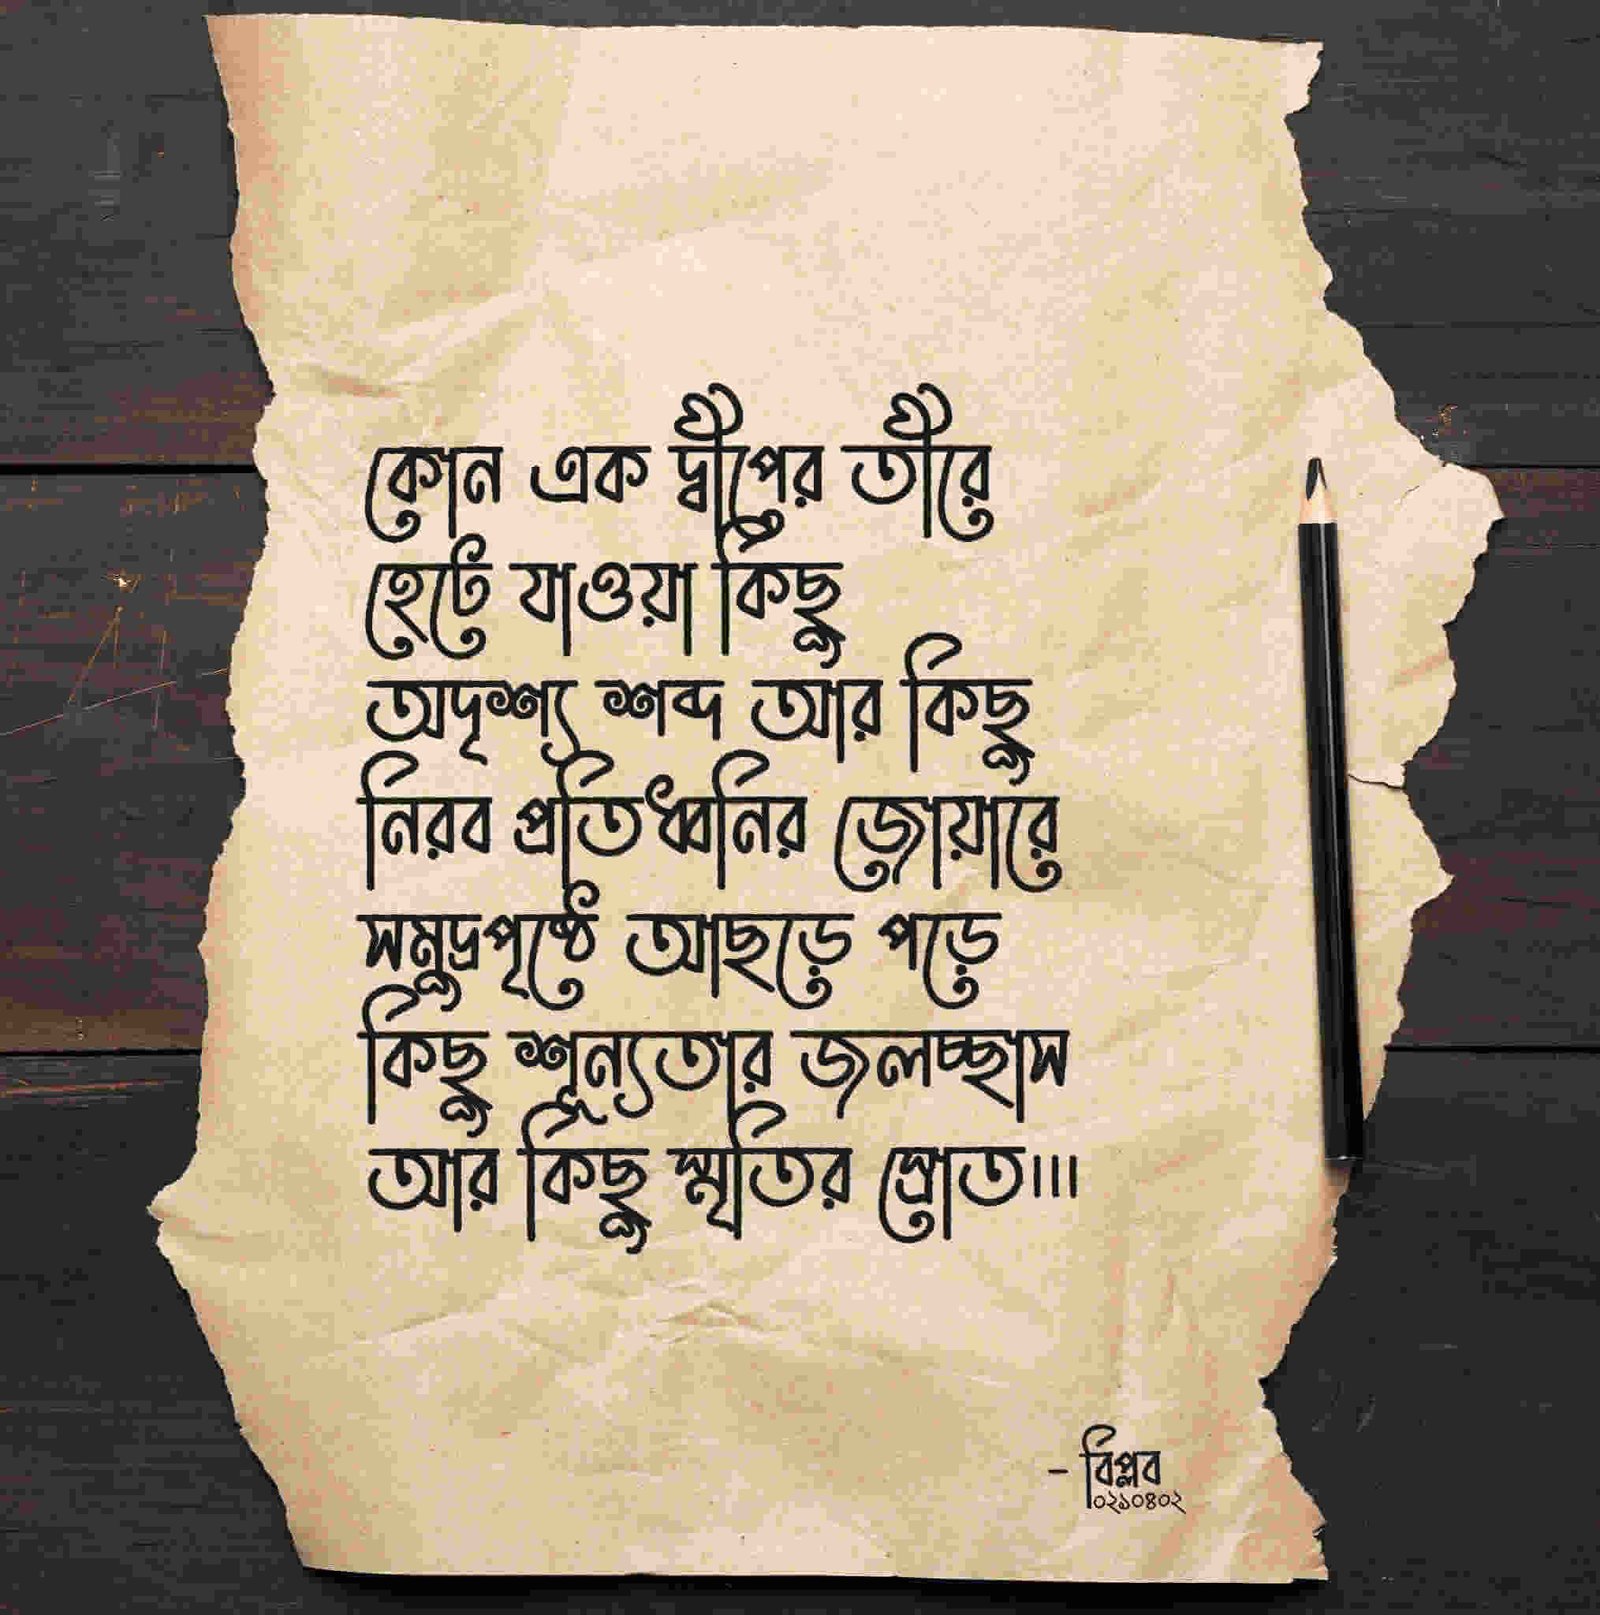 কোন এক দ্বীপের তীরে
হেটে যাওয়া কিছু
অদৃশ্য শব্দ আর কিছু
নিরব প্রতিধ্বনির জোয়ারে
সমুদ্রপৃষ্ঠে আছড়ে পড়ে
কিছু শূন্যতার জলচ্ছাস
আর কিছু স্মৃতির স্রোত।।।
- বিপ্লব
০২১০৪০২